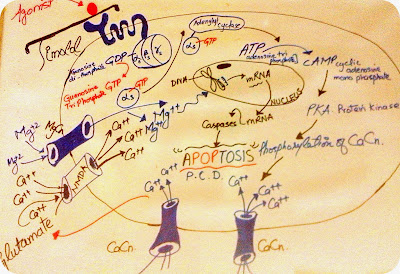 Agonist
Imidazol
Guanosine di-phosphate GDP
αs βs γ
αs GTP
Adenylyl cyclase
Guanosine Tri Phosphate GTP
αs
ATP
adenosine tri phosphate
cAMP cyclic adenosine mono phosphate
DNA
mRNA
NUCLEUS
PKA. Protein kinase
Mg²⁺
Mg²⁺
Mg²⁺
Mg++
Mg++
Ca++
Ca++
Ca++
Ca++
Ca++
Ca++
NMDA
Caspases
mRNA
"APOPTOSIS"
P.C.D.
Phosphorylation of CaCn.
Glutamate
Ca++
Ca++
Ca++
Ca++
Ca++
Ca++
CaCn.
CaCn.